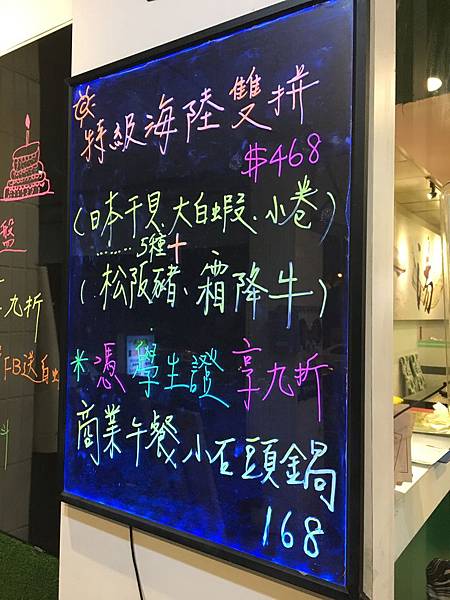 特級海陸雙拼
$468
(日本干貝.大白蝦.小卷)
………5種+
(松阪豬、霜降牛)
*憑學生證享九折
商業午餐小石頭鍋
168
盤
九折
FB送